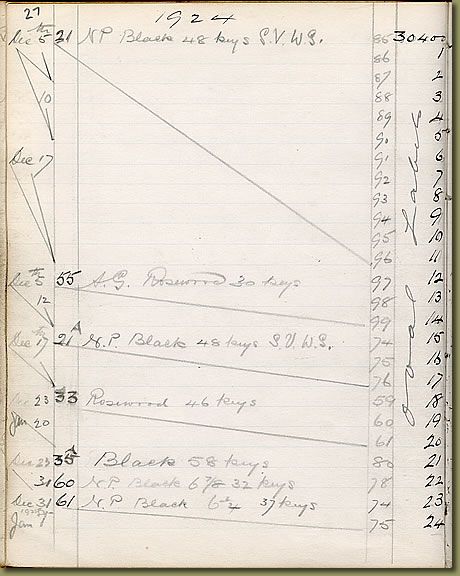 27
1924
Dec 5th 21 N.P. Black 48 keys S.V. W.S. 85 30400
86 1
87 2
10 88 3
89 4
90 5
Dec 17 91 6
92 7
93 8
94 9
95 10
96 11
Dec 5th 55 A.G. Rosewood 30 keys 97 12
12 98 13
99 14
Dec 17th 21A N.P. Black 48 keys S.V. W.S. 74 15
75 16
76 17
Dec 23 33 Rosewood 46 keys 59 18
Jan 20 60 19
61 20
Dec 23 35A Black 58 keys 80 21
31 60 N.P. Black 6 7/8 32 keys 78 22
Dec 31 61 N.P. Black 37 keys 74 23
Jan 75 24
Oval Label